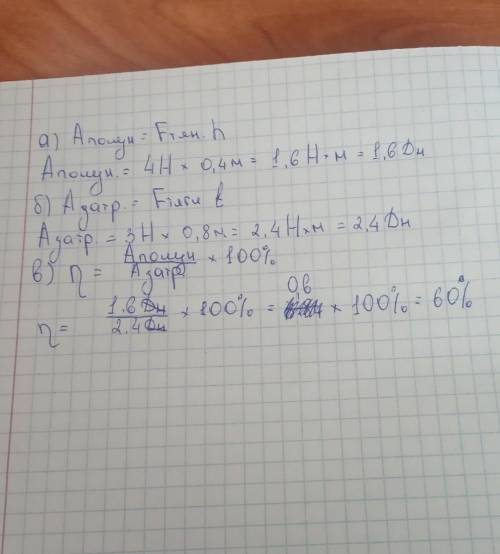 а) Aполун = Fтян. h
Aполун. = 4H × 0,4м = 1,6 H×м = 1,6 Дн
б) Aзатр. = Fтяги ℓ
Aзатр. = 3H × 0,8м = 2,4 H×м = 2,4 Дн
в) η = Aполун / Aзатр × 100%
η = 1.6 Дн / 2.4 Дн × 100% = 0,6 × 100% = 60%